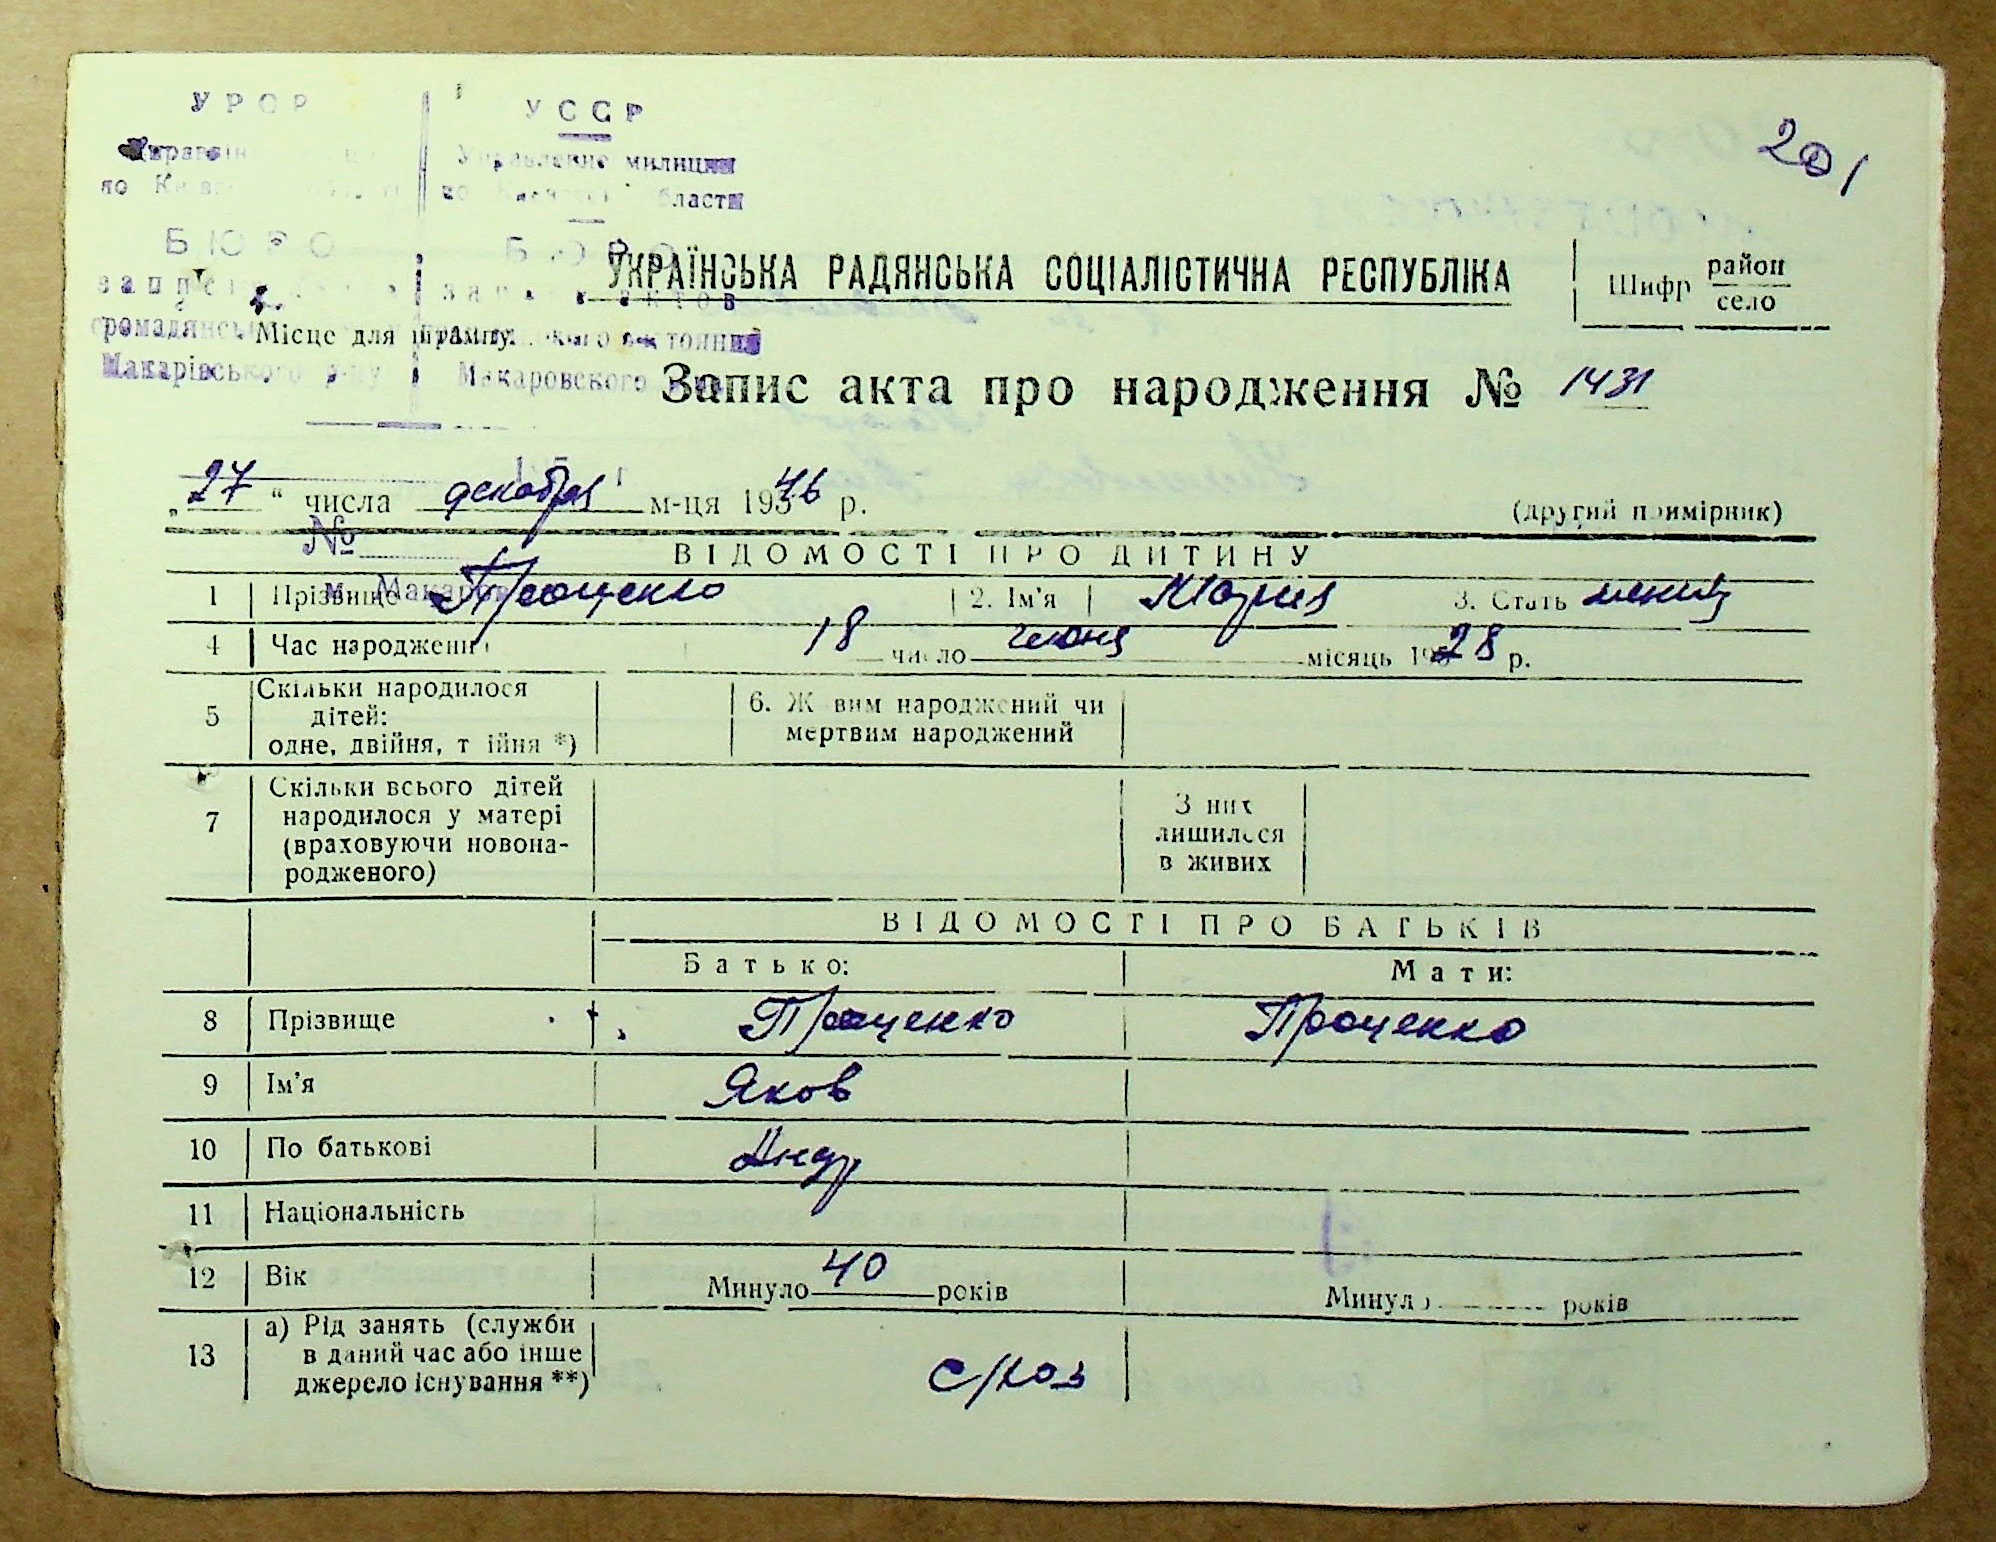 УРСР
УССР
Управление милиции
по
по области
201
БЮРО
БЮРО
УКРАЇНСЬКА РАДЯНСЬКА СОЦІАЛІСТИЧНА РЕСПУБЛІКА
Шифр район
село
Місце для штампу.
Макарівського р-ну Макаровского
Запис акта про народження № 1431
„27“ числа декабря м-ця 1946 р.
(другий примірник)
№
м. Макаров
ВІДОМОСТІ ПРО ДИТИНУ
1 Прізвище Проценко 2. Ім'я Мария 3. Стать
4 Час народження 18 число июня місяць 1928 р.
5 Скільки народилося дітей: одне, двійня, трійня *) 6. Живим народжений чи мертвим народжений
7 Скільки всього дітей народилося у матері (враховуючи новонародженого) З них лишилося в живих
ВІДОМОСТІ ПРО БАТЬКІВ
Батько: Мати:
8 Прізвище Проценко Проценко
9 Ім'я Яков
10 По батькові Андр
11 Національність
12 Вік Минуло 40 років Минуло років
13 а) Рід занять (служби в даний час або інше джерело існування **) с/хоз